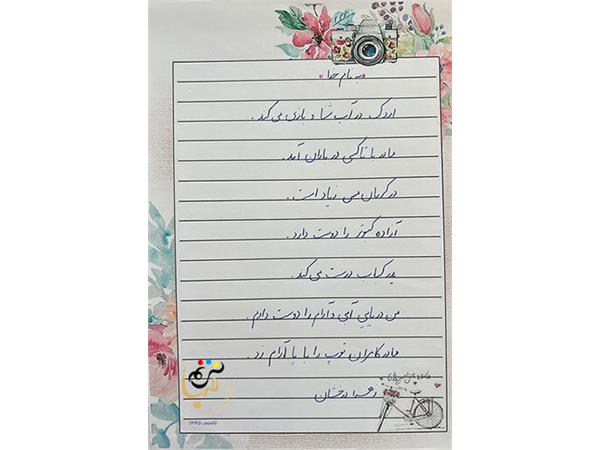 «به نام خدا»
اردک در آب شنا و بازی می‌کند.
مادر با تاکسی در باران آمد.
در کرمان مس زیاد است.
آزاده کبوتر را دوست دارد.
پدر کباب درست می‌کند.
من دریایِ آبی و آرام را دوست دارم.
مادر کامران توپ را با پا آرام زد.
زهرا درخشان
تأسیس ۱۳۸۵